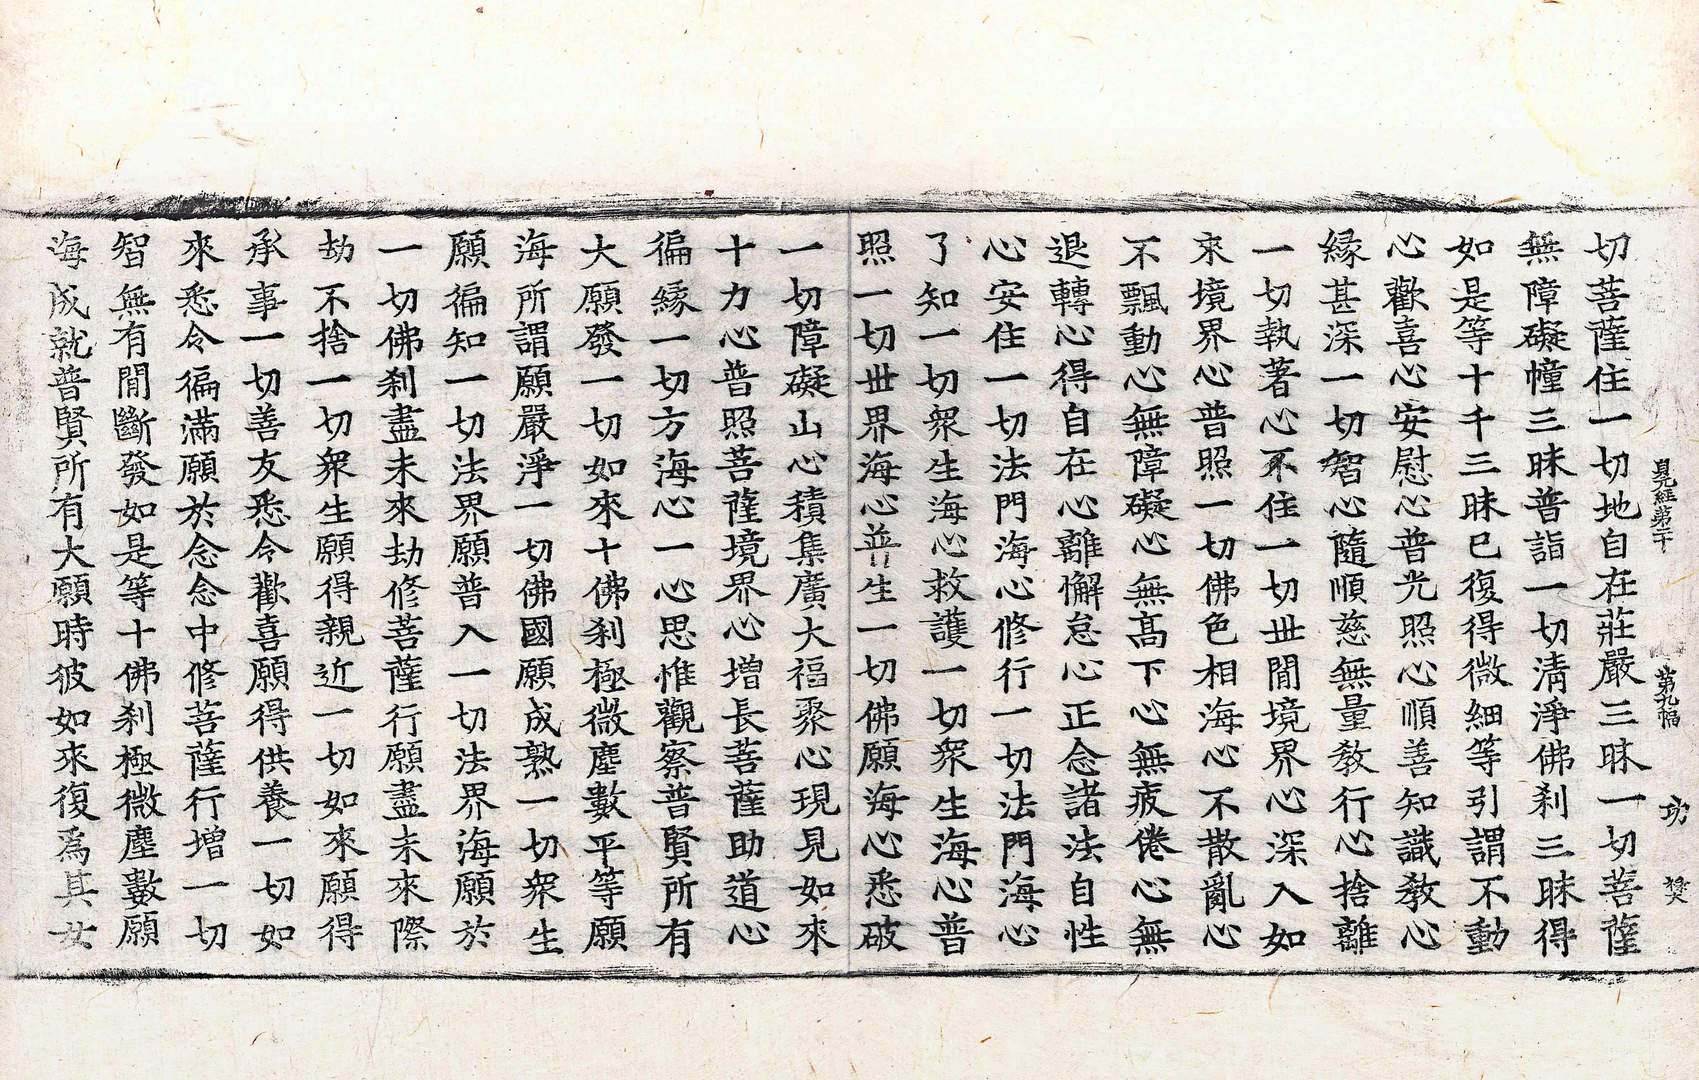 晃經第二十　第九幅　功　奬
切菩薩住一切地自在莊嚴三昧一切菩薩
無障礙幢三昧普詣一切清淨佛刹三昧得
如是等十千三昧已復得微細等引謂不動
心歡喜心安慰心普光照心順善知識教心
緣甚深一切智心隨順慈無量教行心捨離
一切執著心不住一切世間境界心深入如
來境界心普照一切佛色相海心不散亂心
不飄動心無障礙心無高下心無疲倦心無
退轉心得自在心離懈怠心正念諸法自性
心安住一切法門海心修行一切法門海心
了知一切衆生海心救護一切衆生海心普
照一切世界海心普生一切佛願海心悉破
一切障礙山心積集廣大福聚心現見如來
十力心普照菩薩境界心增長菩薩助道心
徧緣一切方海心一心思惟觀察普賢所有
大願發一切如來十佛刹極微塵數平等願
海所謂願嚴淨一切佛國願成熟一切衆生
願徧知一切法界願普入一切法界海願於
一切佛刹盡未來劫修菩薩行願盡未來際
劫不捨一切衆生願得親近一切如來願得
承事一切善友悉令歡喜願得供養一切如
來悉令徧滿願於念念中修菩薩行增一切
智無有間斷發如是等十佛刹極微塵數願
海成就普賢所有大願時彼如來復爲其女